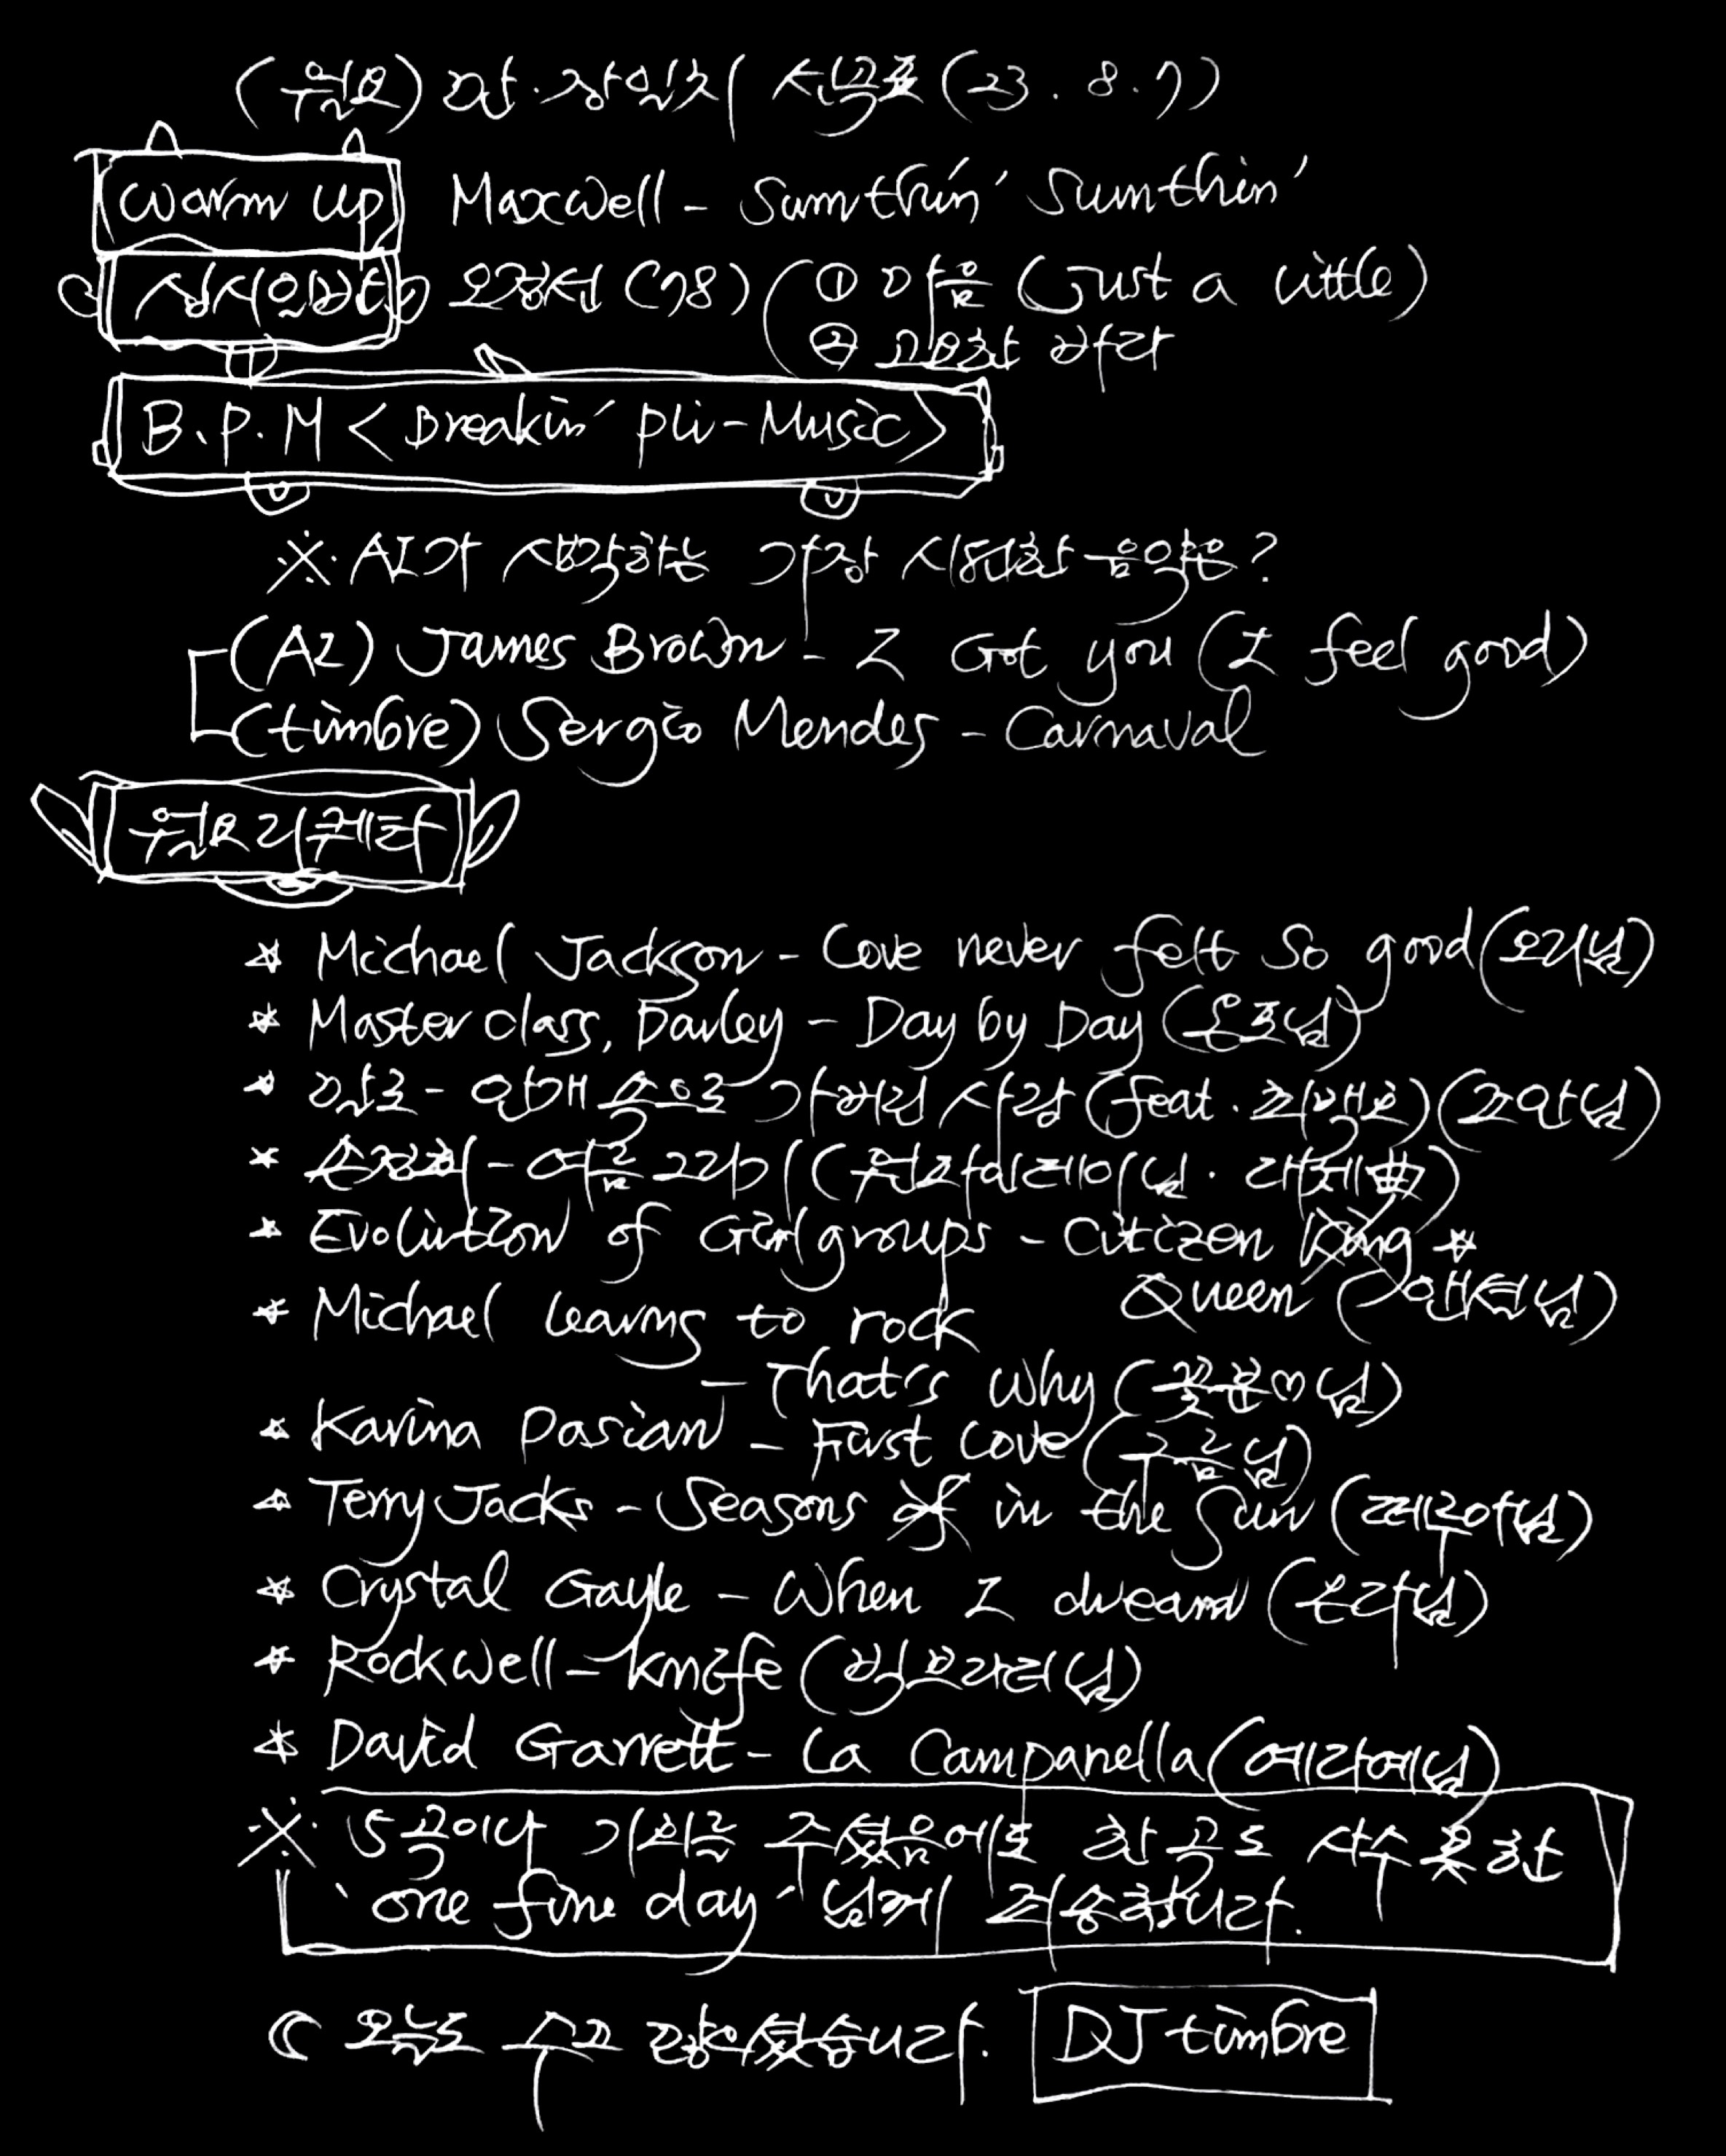 (월요) 만·장일치 선곡표 (23. 8. 7)
Warm up Maxwell - Sumthin' Sumthin'
심시일반 오정선 (98) ① 마음 (Just a little)
② 고요한 바다
B.P.M < Breakin' pli-Music >
※ AI가 생각하는 가장 시원한 음악은?
(AI) James Brown - I Got you (I feel good)
(timbre) Sergio Mendes - Carnaval
월요 리퀘스타
* Michael Jackson - Love never felt So good (오리님)
* Master class, Darley - Day by Day (온조님)
* 안개 속으로 가버린 사랑 (feat. 최백호)
* 손정희 - 여름 그리기
* Evolution of Girl groups - Citizen King *
Queen
* Michael learns to rock
- That's Why (꽃문♡님)
* Karina Pasian - First Love (구름님)
* Terry Jacks - Seasons of in the Sun
* Crystal Gayle - When I dream
* Rockwell - knife
* David Garrett - La Campanella (에라에님)
※ 5곡이나 기회를 주셨음에도 한 곡도 사수 못한
'one fine day' 님께 죄송합니다.
오늘도 수고 많으셨습니다. DJ timbre